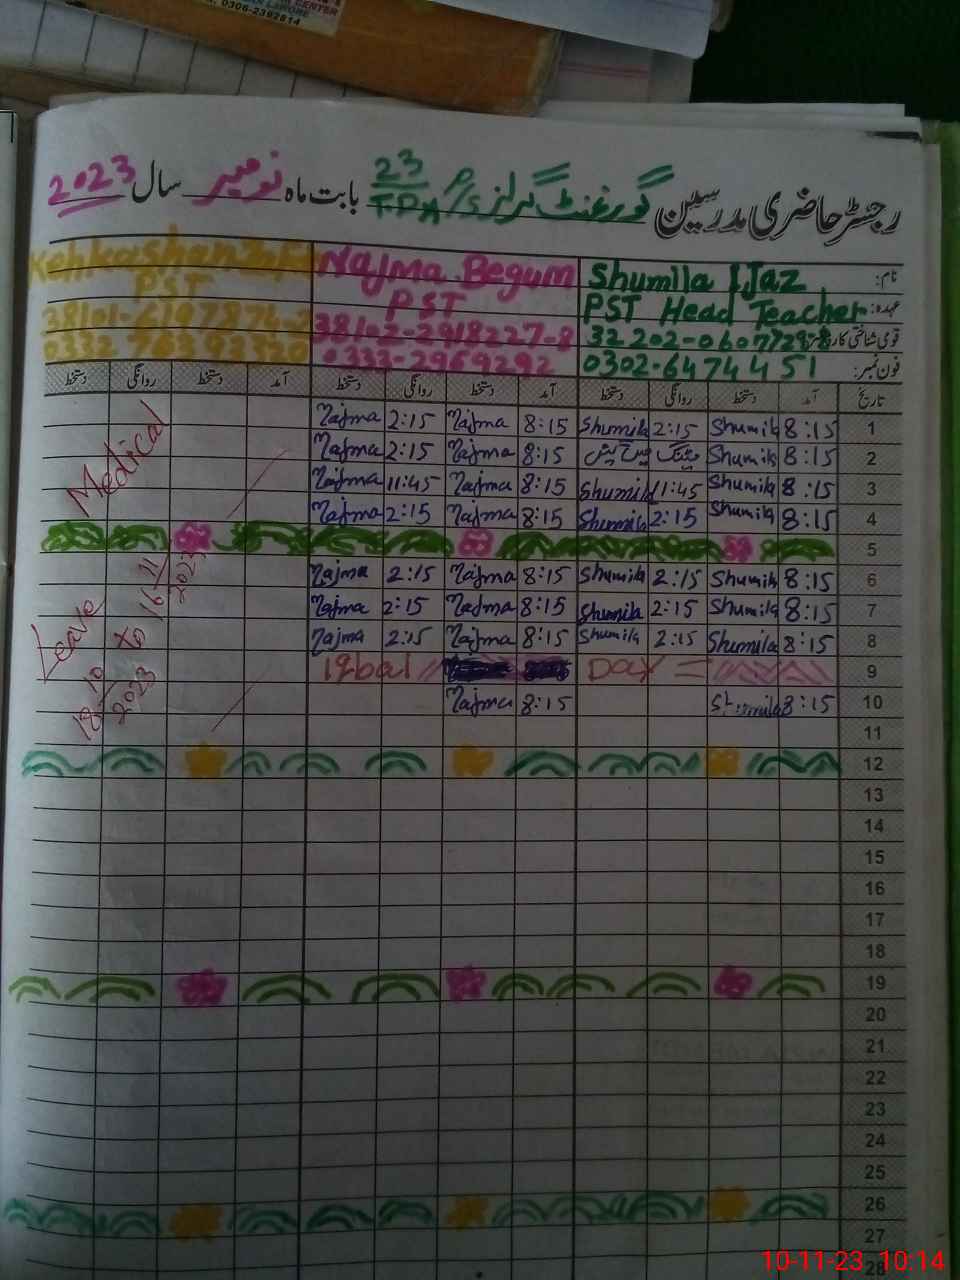 CENTER
LAHORE
0306-2392614
رجسٹر حاضری مدرسین گورنمنٹ گرلز P/S 23 TDA بابت ماہ نومبر سال 2023
نام: Shumila IJaz Najma Begum Kehkashan
عہدہ: PST Head Teacher PST PST
قومی شناختی کارڈ 38102-2918227-8
فون نمبر: 0302-6474451 0333-2969292
تاریخ آمد دستخط روانگی دستخط آمد دستخط روانگی دستخط آمد دستخط روانگی دستخط
1 8:15 Shumila 2:15 Shumila 8:15 Najma 2:15 Najma
2 8:15 Shumila میٹنگ 8:15 Najma 2:15 Najma
3 8:15 Shumila 11:45 Shumila 8:15 Najma 11:45 Najma
4 8:15 Shumila 2:15 Shumila 8:15 Najma 2:15 Najma
5
6 8:15 Shumila 2:15 Shumila 8:15 Najma 2:15 Najma
7 8:15 Shumila 2:15 Shumila 8:15 Najma 2:15 Najma
8 8:15 Shumila 2:15 Shumila 8:15 Najma 2:15 Najma
9 Iqbal Day =
10 8:15 Shumila 8:15 Najma
11
12
13
14
15
16
17
18
19
20
21
22
23
24
25
26
27
28
Medical
Leave
18-10-2023 to 16-11-2023
10-11-23 10:14